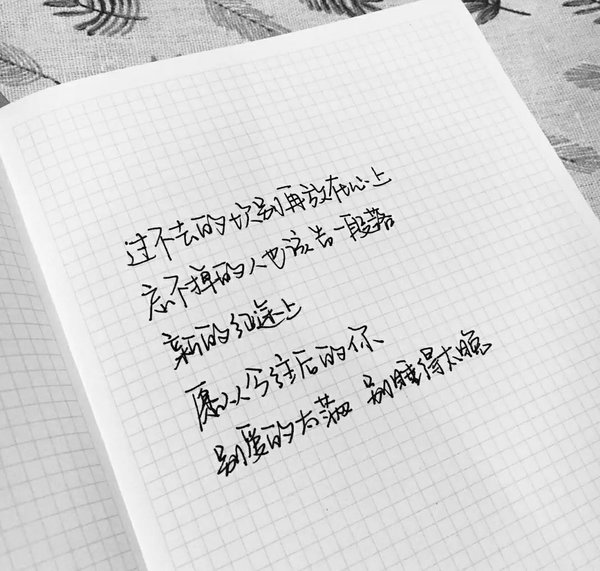 过不去的坎别再放在心上
忘不掉的人也该告一段落
新的征途上
愿从今往后的你
别爱的太满 别睡得太晚